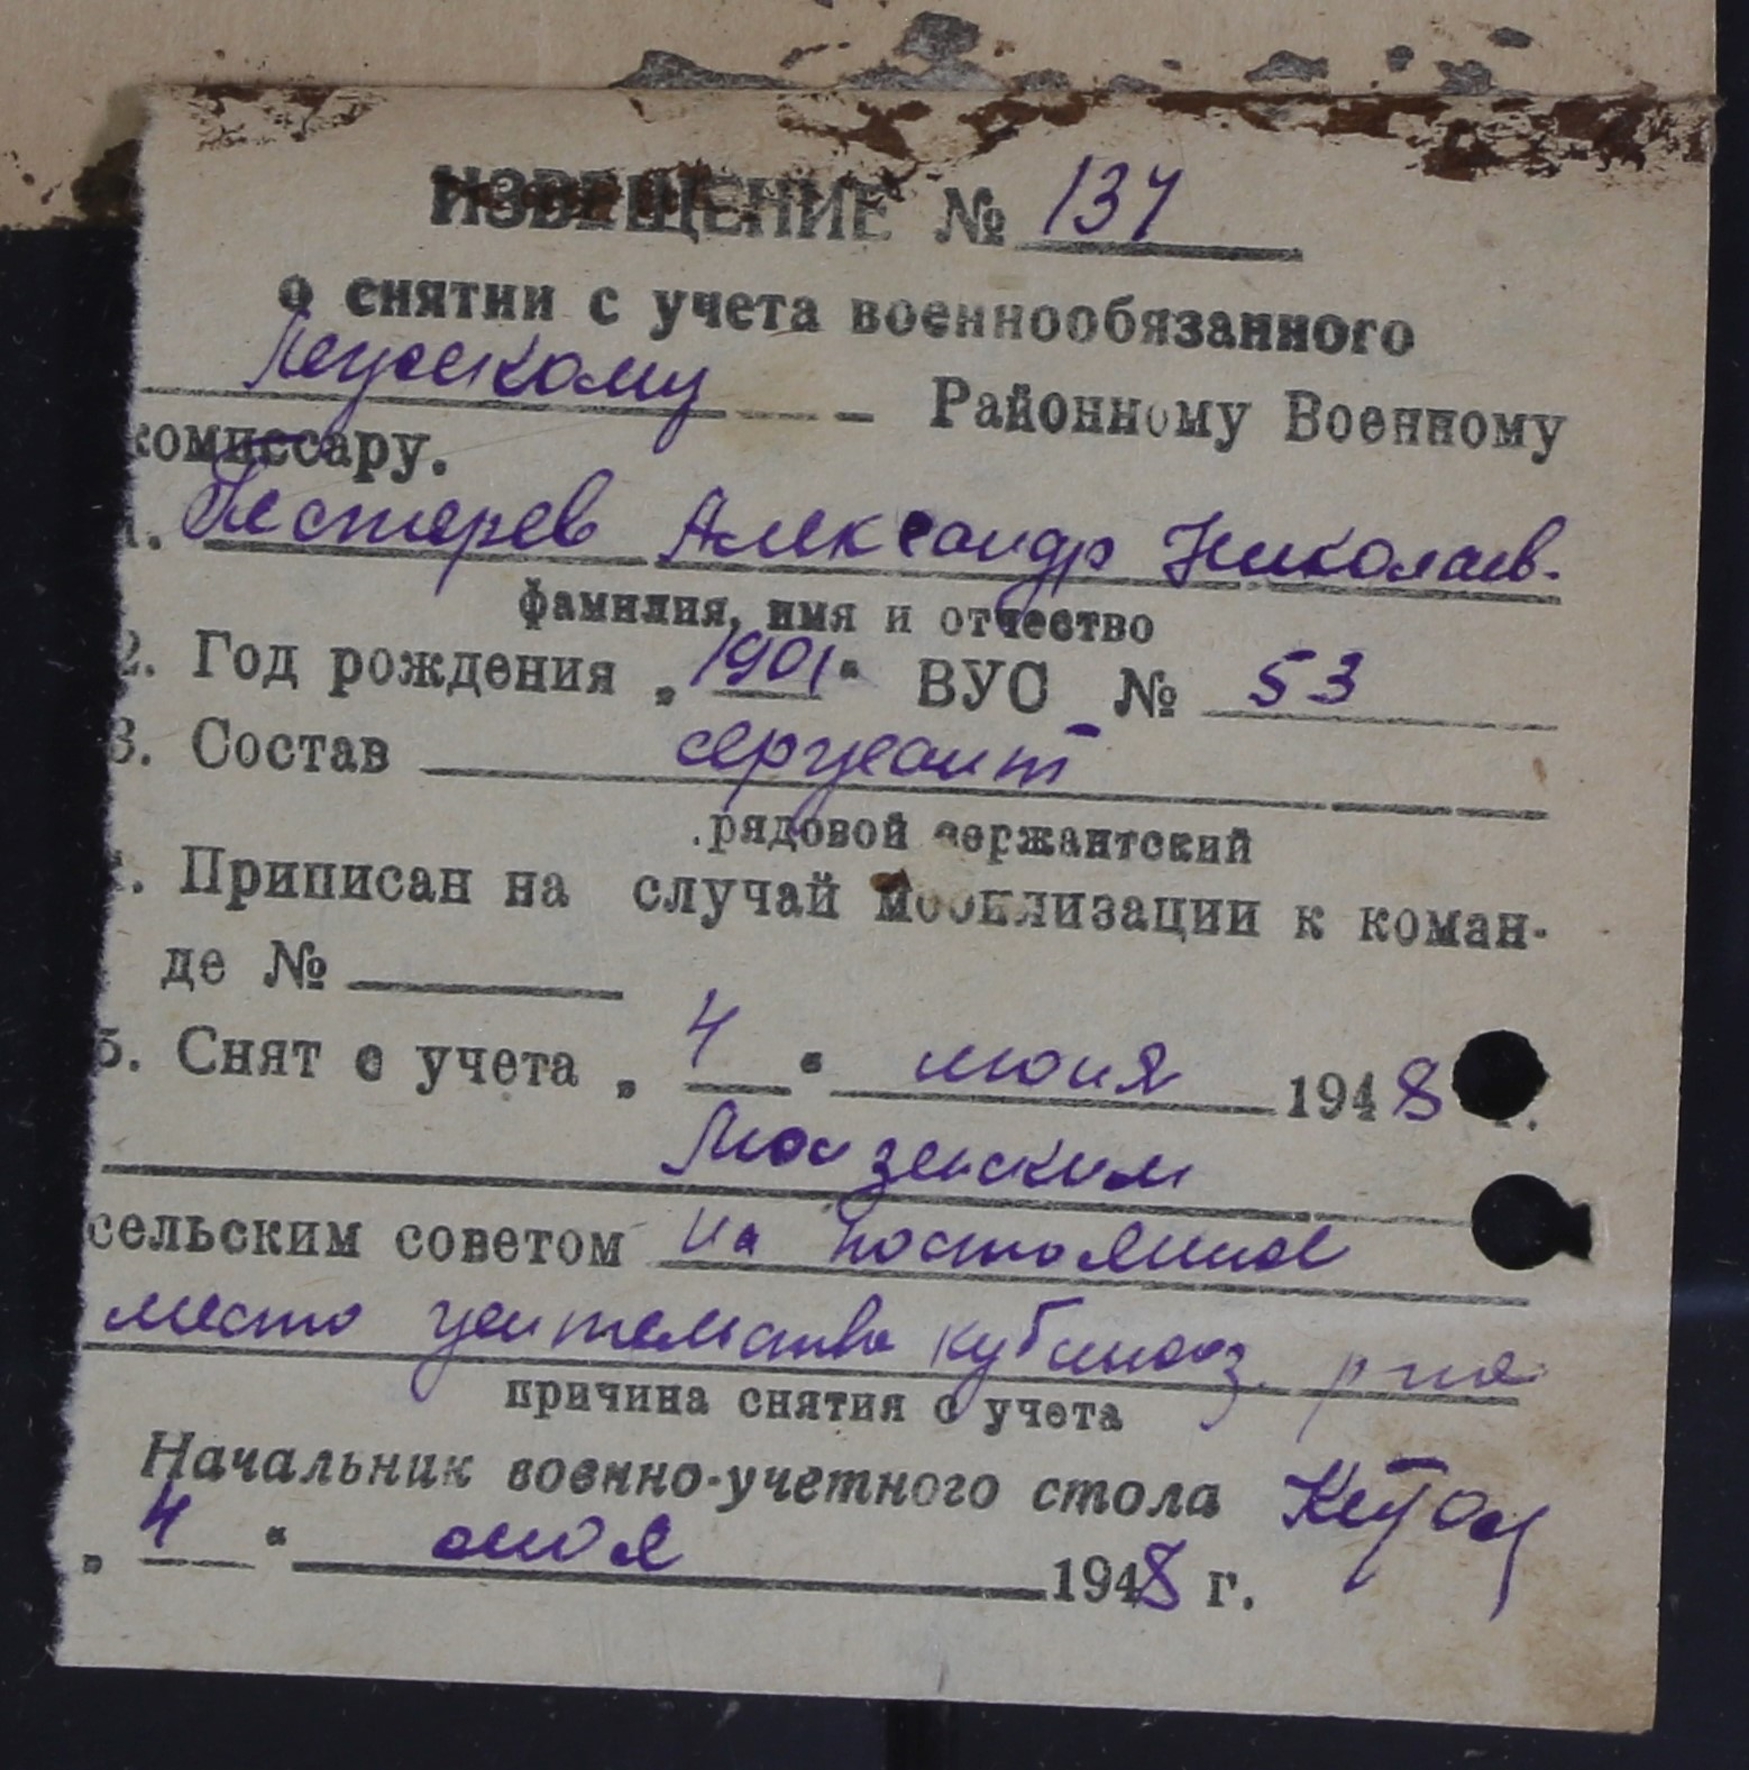 ИЗВЕЩЕНИЕ № 134
о снятии с учета военнообязанного
Районному Военному
комиссару.
1. Пестерев Александр Николаев.
фамилия, имя и отчество
2. Год рождения „1901“ ВУС № 53
3. Состав сержант
рядовой сержантский
4. Приписан на случай мобилизации к коман-
де №
5. Снят с учета „4“ июня 1948 г.
сельским советом на постоянное
место жительства кубинооз. р-на
причина снятия с учета
Начальник военно-учетного стола
„4“ июня 1948 г.